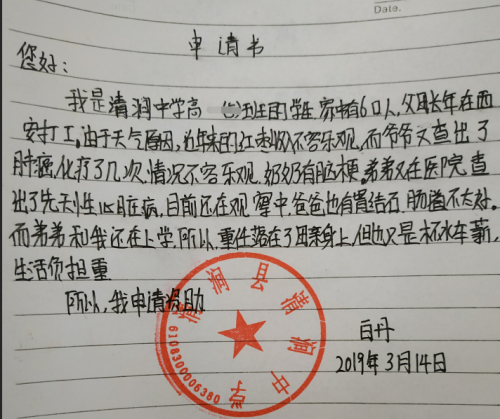 Date.
申请书
您好:
我是清涧中学高 班的学生,家中有6口人,父母长年在西
安打工。由于天气原因,近年来的红枣收入不容乐观,而爷爷又查出了
肿瘤,化疗了几次,情况不容乐观,奶奶有脑梗。弟弟又在医院查
出了先天性心脏病,目前还在观察中,爸爸也有胃结石,肠道不太好。
而弟弟和我还在上学,所以,重任落在了母亲身上,但也只是杯水车薪,
生活负担重
所以,我申请资助
清涧县清涧中学
6108300006380
白丹
2019年3月14日